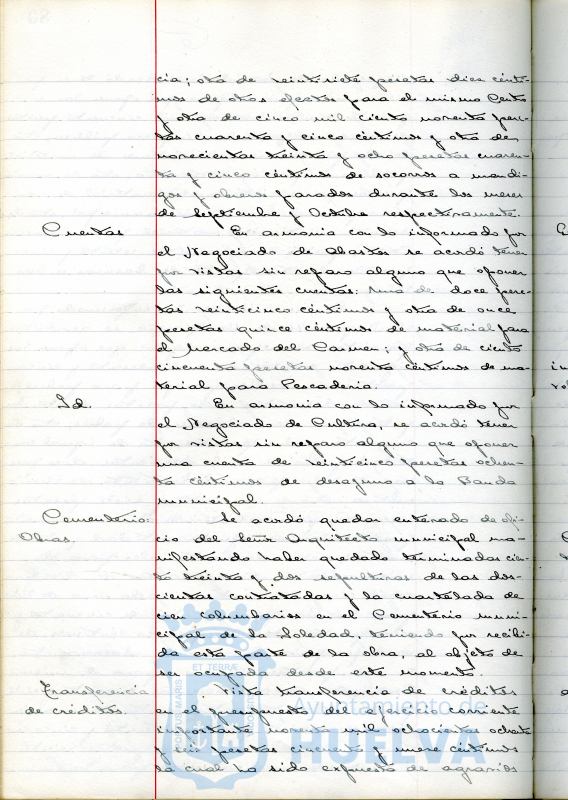 cia; otra de veintisiete pesetas diez cénti-
mos de otros efectos para el mismo Centro
y otra de cinco mil ciento noventa pese-
tas cuarenta y cinco céntimos y otra de
novecientas treinta y ocho pesetas cuaren-
ta y cinco céntimos de socorros a mendi-
gos y obreros parados durante los meses
de Septiembre y Octubre respectivamente.
Cuentas
En armonia con lo informado por
el Negociado de Abastos se acordó tener
por vistas sin reparo alguno que oponer
las siguientes cuentas: una de doce pese-
tas veinticinco céntimos y otra de once
pesetas quince céntimos de material para
el Mercado del Carmen; y otra de ciento
cincuenta pesetas noventa céntimos de ma-
terial para Pescaderia.
Id.
En armonia con lo informado por
el Negociado de Cultura, se acordó tener
por vistas sin reparo alguno que oponer
una cuenta de veinticinco pesetas ochen-
ta céntimos de desayuno a la Banda
municipal.
Cementerio:
Obras.
Se acordó quedar enterado de ofi-
cio del Señor Arquitecto municipal ma-
nifestando haber quedado terminadas cien-
to treinta y dos sepulturas de las dos-
cientas contratadas y la cuartelada de
cien columbarios en el Cementerio muni-
cipal de la Soledad, teniendo por recibi-
da esta parte de la obra, al objeto de
ser ocupada desde este momento.
Transferencia
de créditos.
Vista transferencia de créditos
en el presupuesto del ejercicio corriente
importante noventa mil ochocientas ochenta
y seis pesetas cincuenta y nueve céntimos
la cual ha sido expuesta de agravios
Ayuntamiento de
HUELVA
ET TERRÆ
PORTUS MARIS